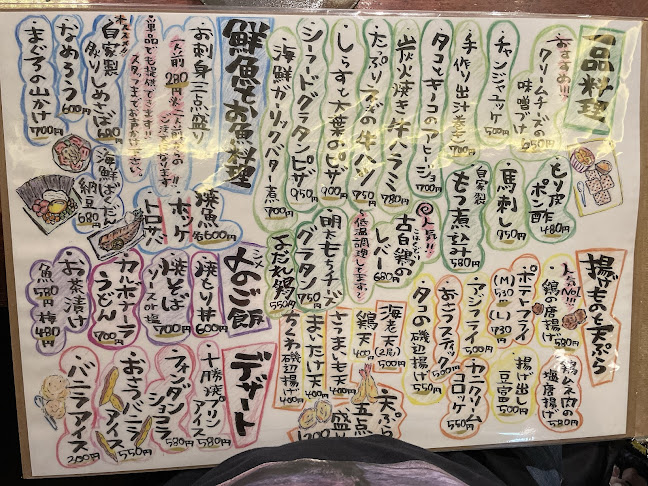 一品料理
おすすめ!!!
・クリームチーズの
味噌づけ 650円
・チャンジャユッケ 500円
・手作り出汁巻き 700円
・タコとキノコのアヒージョ 700円
・炭火焼き牛ハラミ 780円
・たっぷりネギの牛ハツ 750円
・しらすと大葉のピザ 900円
・シーフードグラタンピザ 950円
・海鮮ガーリックバター煮 700円
・とり皮ポン酢 480円
・馬刺し 950円
・自家製
もつ煮込み 580円
人気!!
・古白鶏の
レバー 680円
低温調理してます
・明太もちチーズ
グラタン 750円
・よだれ鶏 550円
鮮魚とお魚料理
・お刺身三点盛り
一人前 280円
ご注文になります
・単品でも提供できます!!
スタッフまでお声かけ下さい。
オススメ!!
・自家製
炙りしめさば 680円
・なめろう 600円
・まぐろの山かけ 700円
・焼魚 各600円
・ホッケ
・トロサバ
・海鮮ばくだん
納豆 680円
揚げものと天ぷら
人気No.1!!!
・鶏の唐揚げ
・ポテトフライ
(M)530 (L)730円
・アジフライ 500円
・おさつスティック 500円
・タコの磯辺揚げ 550円
・鶏ムネ肉の
塩唐揚げ 580円
・揚げ出し
豆富 500円
・カニクリーム
コロッケ 550円
・海老天(2尾) 500円
・鶏天 400円
・さつまいも天 400円
・まいたけ天 400円
・ちくわ磯辺揚げ 400円
・天ぷら
五点
盛り
1200
〆のご飯
・焼とり丼 600円
・焼そば
ソースor塩 700円
・カルボナーラ
うどん 700円
・お茶漬け
魚 580円 梅 480円
デザート
・十勝焼プリン
アイス 580円
・フォンダン
ショコラ 580円
・おさつバニラ
アイス 550円
・バニラアイス 200円